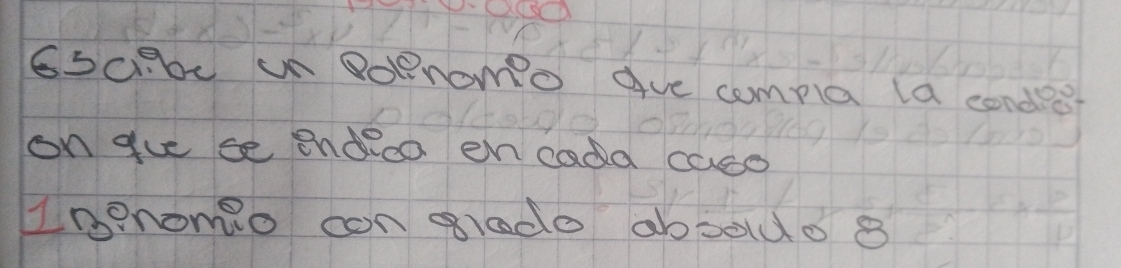 Escribe un Polinomio que cumpla la condici-
on que se indica en cada caso
1 Binomio con grado absoluto 8